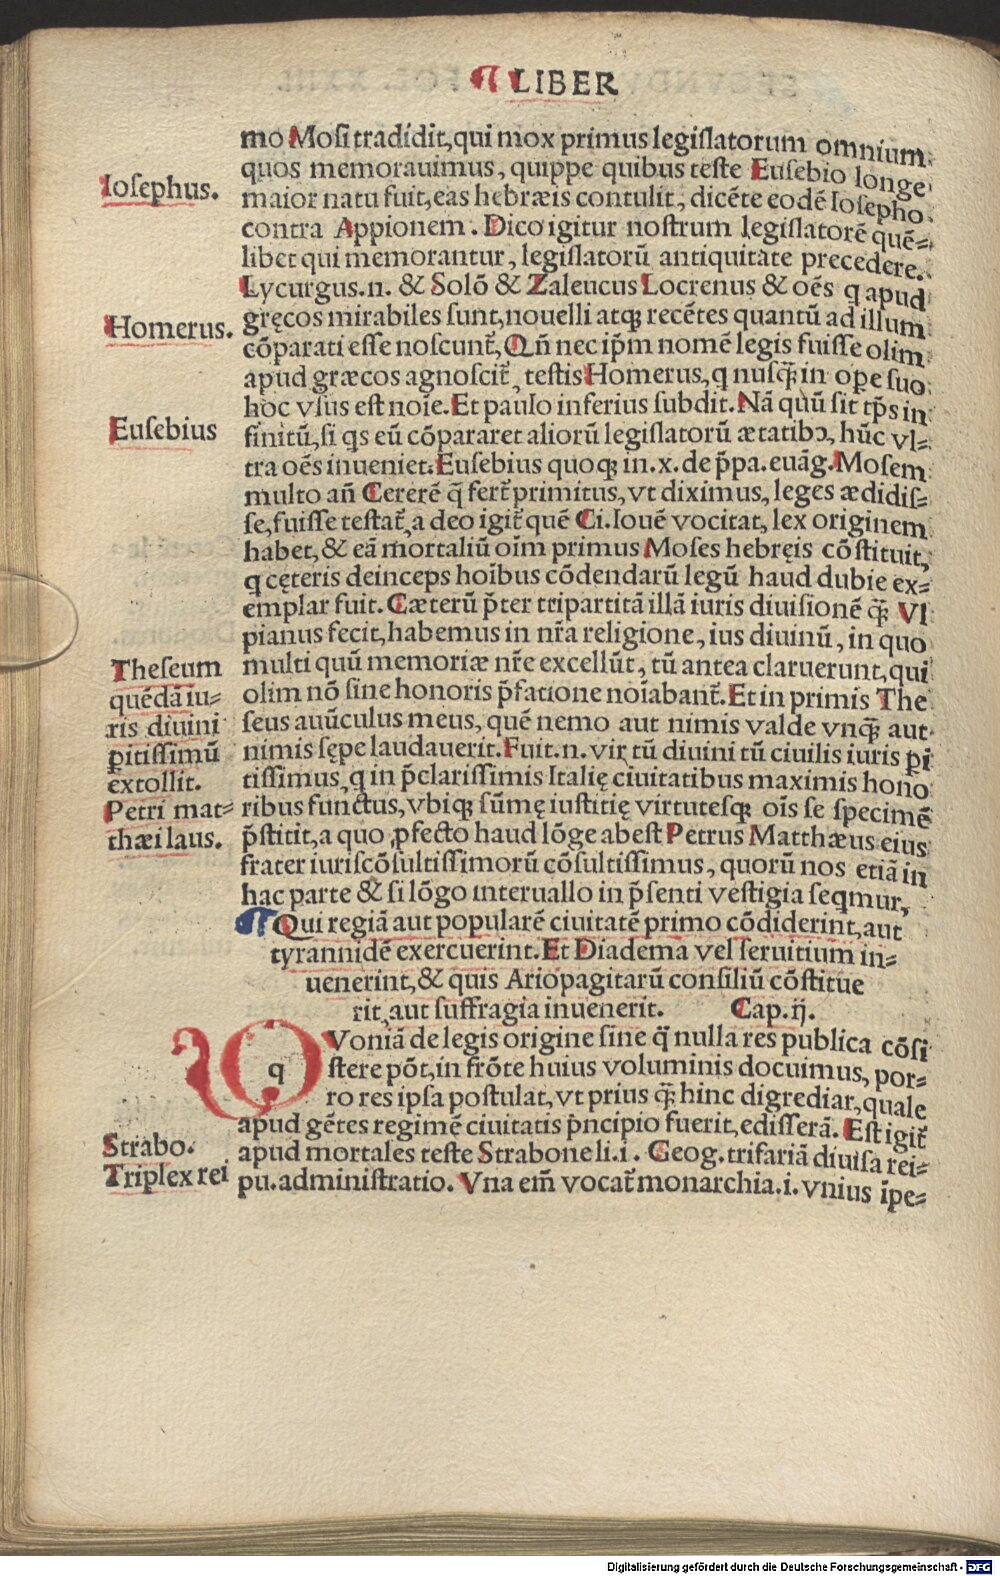 ¶ LIBER
mo Moſi tradidit, qui mox primus legiſlatorum omnium
quos memorauimus, quippe quibus teſte Euſebio longe
Ioſephus.
maior natu fuit, eas hebræis contulit, dicēte eodē Ioſepho
contra Appionem. Dico igitur noſtrum legiſlatorē quē⸗
libet qui memorantur, legiſlatorū antiquitate precedere.
Lycurgus.n. & Solō & Zaleucus Locrenus & oēs q apud
Homerus.
gręcos mirabiles ſunt, nouelli atqꝫ recētes quantū ad illum
cōparati eſſe noſcunt̄, Qn̄ nec ip̄m nomē legis fuiſſe olim
apud græcos agnoſcit̄, teſtis Homerus, q nuſq̄ in ope ſuo
hoc vſus eſt noīe. Et paulo inferius ſubdit. Nā quū ſit tp̄s in
Euſebius
finitū, ſi qs eū cōpararet aliorū legiſlatorū ætatibꝰ, hūc vl⸗
tra oēs inueniet. Euſebius quoqꝫ in.x. de p̄pa. euāg. Moſem
multo an̄ Cererē q̄ fert̄ primitus, vt diximus, leges ædidiſ⸗
ſe, fuiſſe teſtat̄, a deo igit̄ quē Ci. Iouē vocitat, lex originem
habet, & eā mortaliū oīm primus Moſes hebręis cōſtituit,
q cęteris deinceps hoībus cōdendarū legū haud dubie ex⸗
emplar fuit. Cæterū p̄ter tripartitā illā iuris diuiſionē q̄ Vl
pianus fecit, habemus in nr̄a religione, ius diuinū, in quo
Theſeum
multi quū memoriæ nr̄e excellūt, tū antea claruerunt, qui
quēdā iu⸗
olim nō ſine honoris p̄fatione noīabant̄. Et in primis The
ris diuini
ſeus auūculus meus, quē nemo aut nimis valde vnq̄ aut
ꝑitiſſimū
nimis ſępe laudauerit. Fuit.n. vir tū diuini tū ciuilis iuris ꝑi
extollit.
tiſſimus, q in p̄clariſſimis Italię ciuitatibus maximis hono
Petri mat⸗
ribus functus, vbiqꝫ ſūmę iuſtitię virtutesqꝫ oīs ſe ſpecimē
thæi laus.
p̄ſtitit, a quo ꝓfecto haud lōge abeſt Petrus Matthæus eius
frater iuriſcōſultiſſimorū cōſultiſſimus, quorū nos etiā in
hac parte & ſi lōgo interuallo in p̄ſenti veſtigia ſeqmur,
¶ Qui regiā aut popularē ciuitatē primo cōdiderint, aut
tyrannidē exercuerint. Et Diadema vel ſeruitium in⸗
uenerint, & quis Ariopagitarū conſiliū cōſtitue
rit, aut ſuffragia inuenerit. Cap. ij.
QVoniā de legis origine ſine q̄ nulla res publica cōſi
ſtere pōt, in frōte huius voluminis docuimus, por⸗
ro res ipſa poſtulat, vt prius q̄ hinc digrediar, quale
apud gētes regimē ciuitatis p̄ncipio fuerit, ediſſerā. Eſt igit̄
Strabo.
apud mortales teſte Strabone li.i. Geog. trifariā diuiſa rei⸗
Triplex rei
pu. adminiſtratio. Vna eīn vocat̄ monarchia.i. vnius īpe⸗
Digitalisierung gefördert durch die Deutsche Forschungsgemeinschaft - DFG